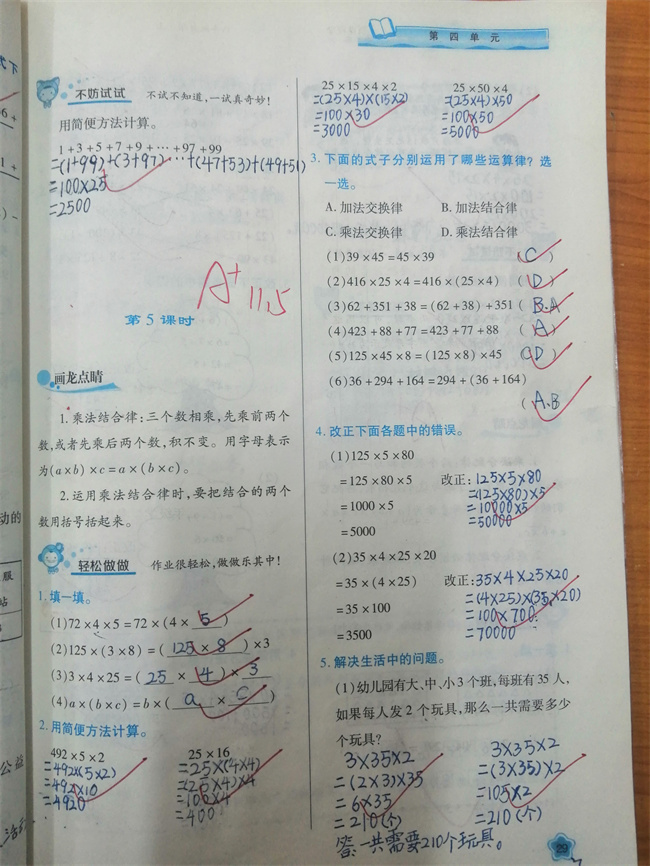 第四单元
不妨试试 不试不知道,一试真奇妙!
用简便方法计算。
1+3+5+7+9+…+97+99
=(1+99)+(3+97)…+(47+53)+(49+51)
=100×25
=2500
A+ 11.5
第5课时
画龙点睛
1.乘法结合律:三个数相乘,先乘前两个
数,或者先乘后两个数,积不变。用字母表示
为(a×b)×c=a×(b×c)。
2.运用乘法结合律时,要把结合的两个
数用括号括起来。
轻松做做 作业很轻松,做做乐其中!
1.填一填。
(1)72×4×5=72×(4×5)
(2)125×(3×8)=(125×8)×3
(3)3×4×25=(25×4)×3
(4)a×(b×c)=b×(a×c)
2.用简便方法计算。
492×5×2
=492×(5×2)
=492×10
=4920
25×16
=25×(4×4)
=(25×4)×4
=100×4
=400
25×15×4×2
=(25×4)×(15×2)
=100×30
=3000
25×50×4
=(25×4)×50
=100×50
=5000
3.下面的式子分别运用了哪些运算律?选
一选。
A.加法交换律 B.加法结合律
C.乘法交换律 D.乘法结合律
(1)39×45=45×39 (C)
(2)416×25×4=416×(25×4) (D)
(3)62+351+38=(62+38)+351 (B.A)
(4)423+88+77=423+77+88 (A)
(5)125×45×8=(125×8)×45 (CD)
(6)36+294+164=294+(36+164)
(A.B)
4.改正下面各题中的错误。
(1)125×5×80
=125×80×5
=1000×5
=5000
改正:125×5×80
=(125×80)×5
=10000×5
=50000
(2)35×4×25×20
=35×(4×25)
=35×100
=3500
改正:35×4×25×20
=(4×25)×(35×20)
=100×700
=70000
5.解决生活中的问题。
(1)幼儿园有大、中、小3个班,每班有35人,
如果每人发2个玩具,那么一共需要多少
个玩具?
3×35×2
=(2×3)×35
=6×35
=210(个)
3×35×2
=(3×35)×2
=105×2
=210(个)
答:一共需要210个玩具。